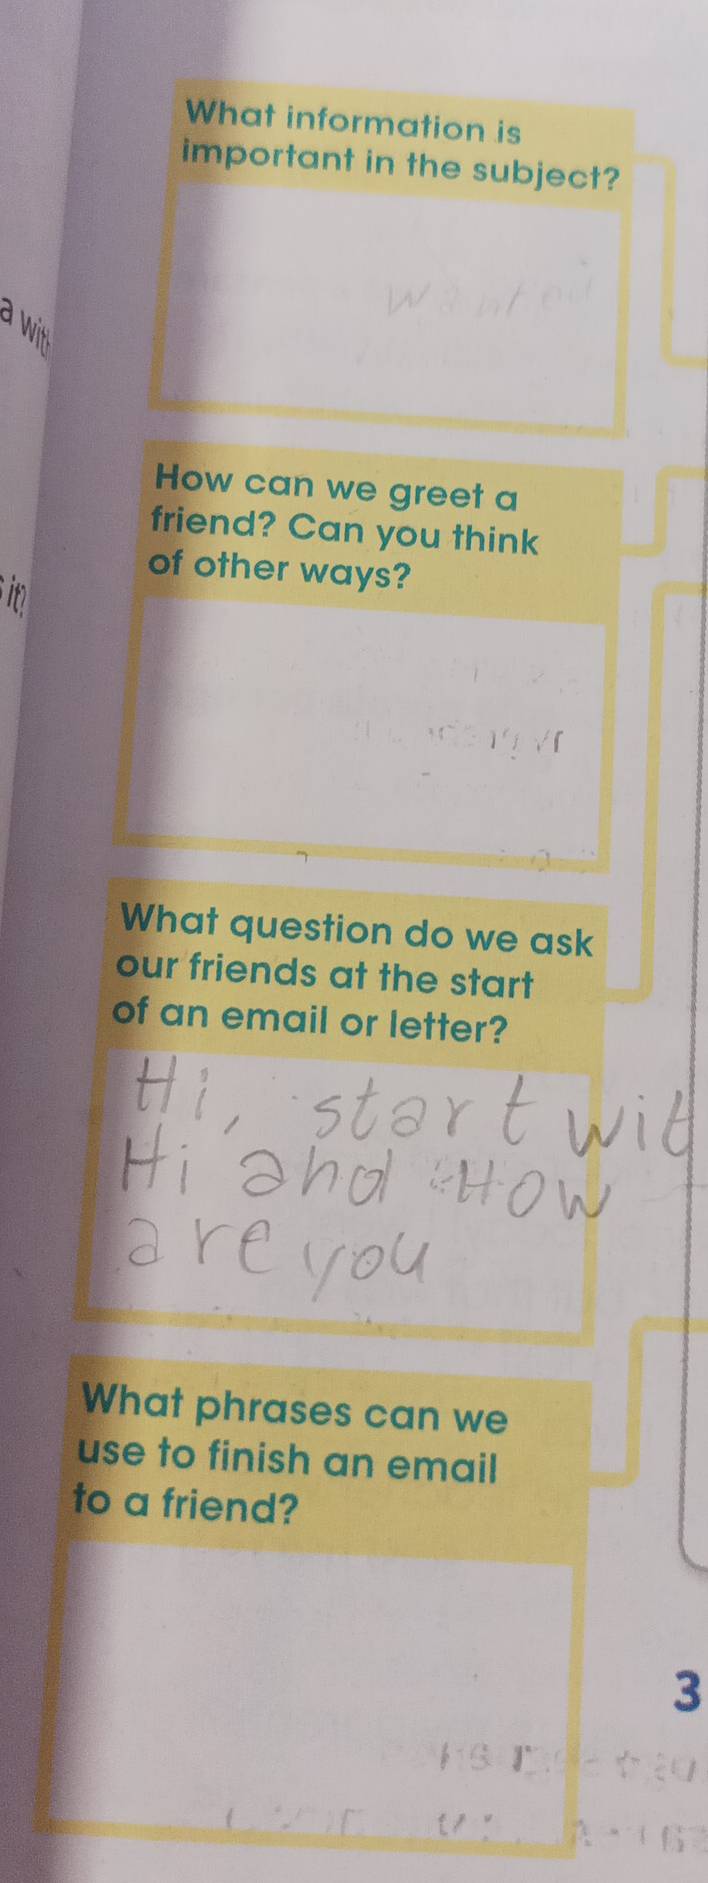 What information is
important in the subject?
wanted
a with
How can we greet a
friend? Can you think
of other ways?
it?
What question do we ask
our friends at the start
of an email or letter?
Hi, start wit
Hi and "How
are you
What phrases can we
use to finish an email
to a friend?
3